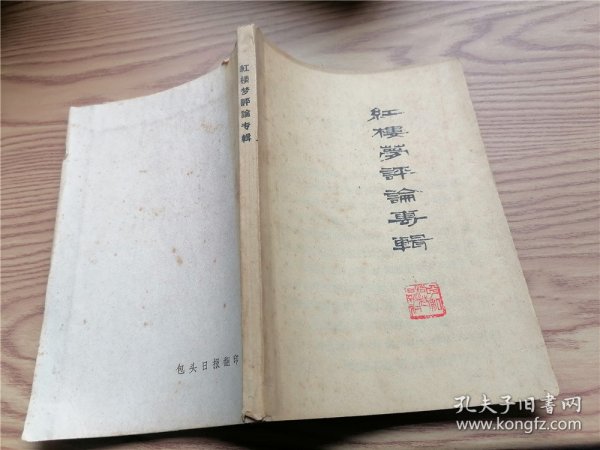 紅樓夢評論專輯
紅楼梦評論专輯
包头日报翻印
孔夫子旧书网
www.kongfz.com